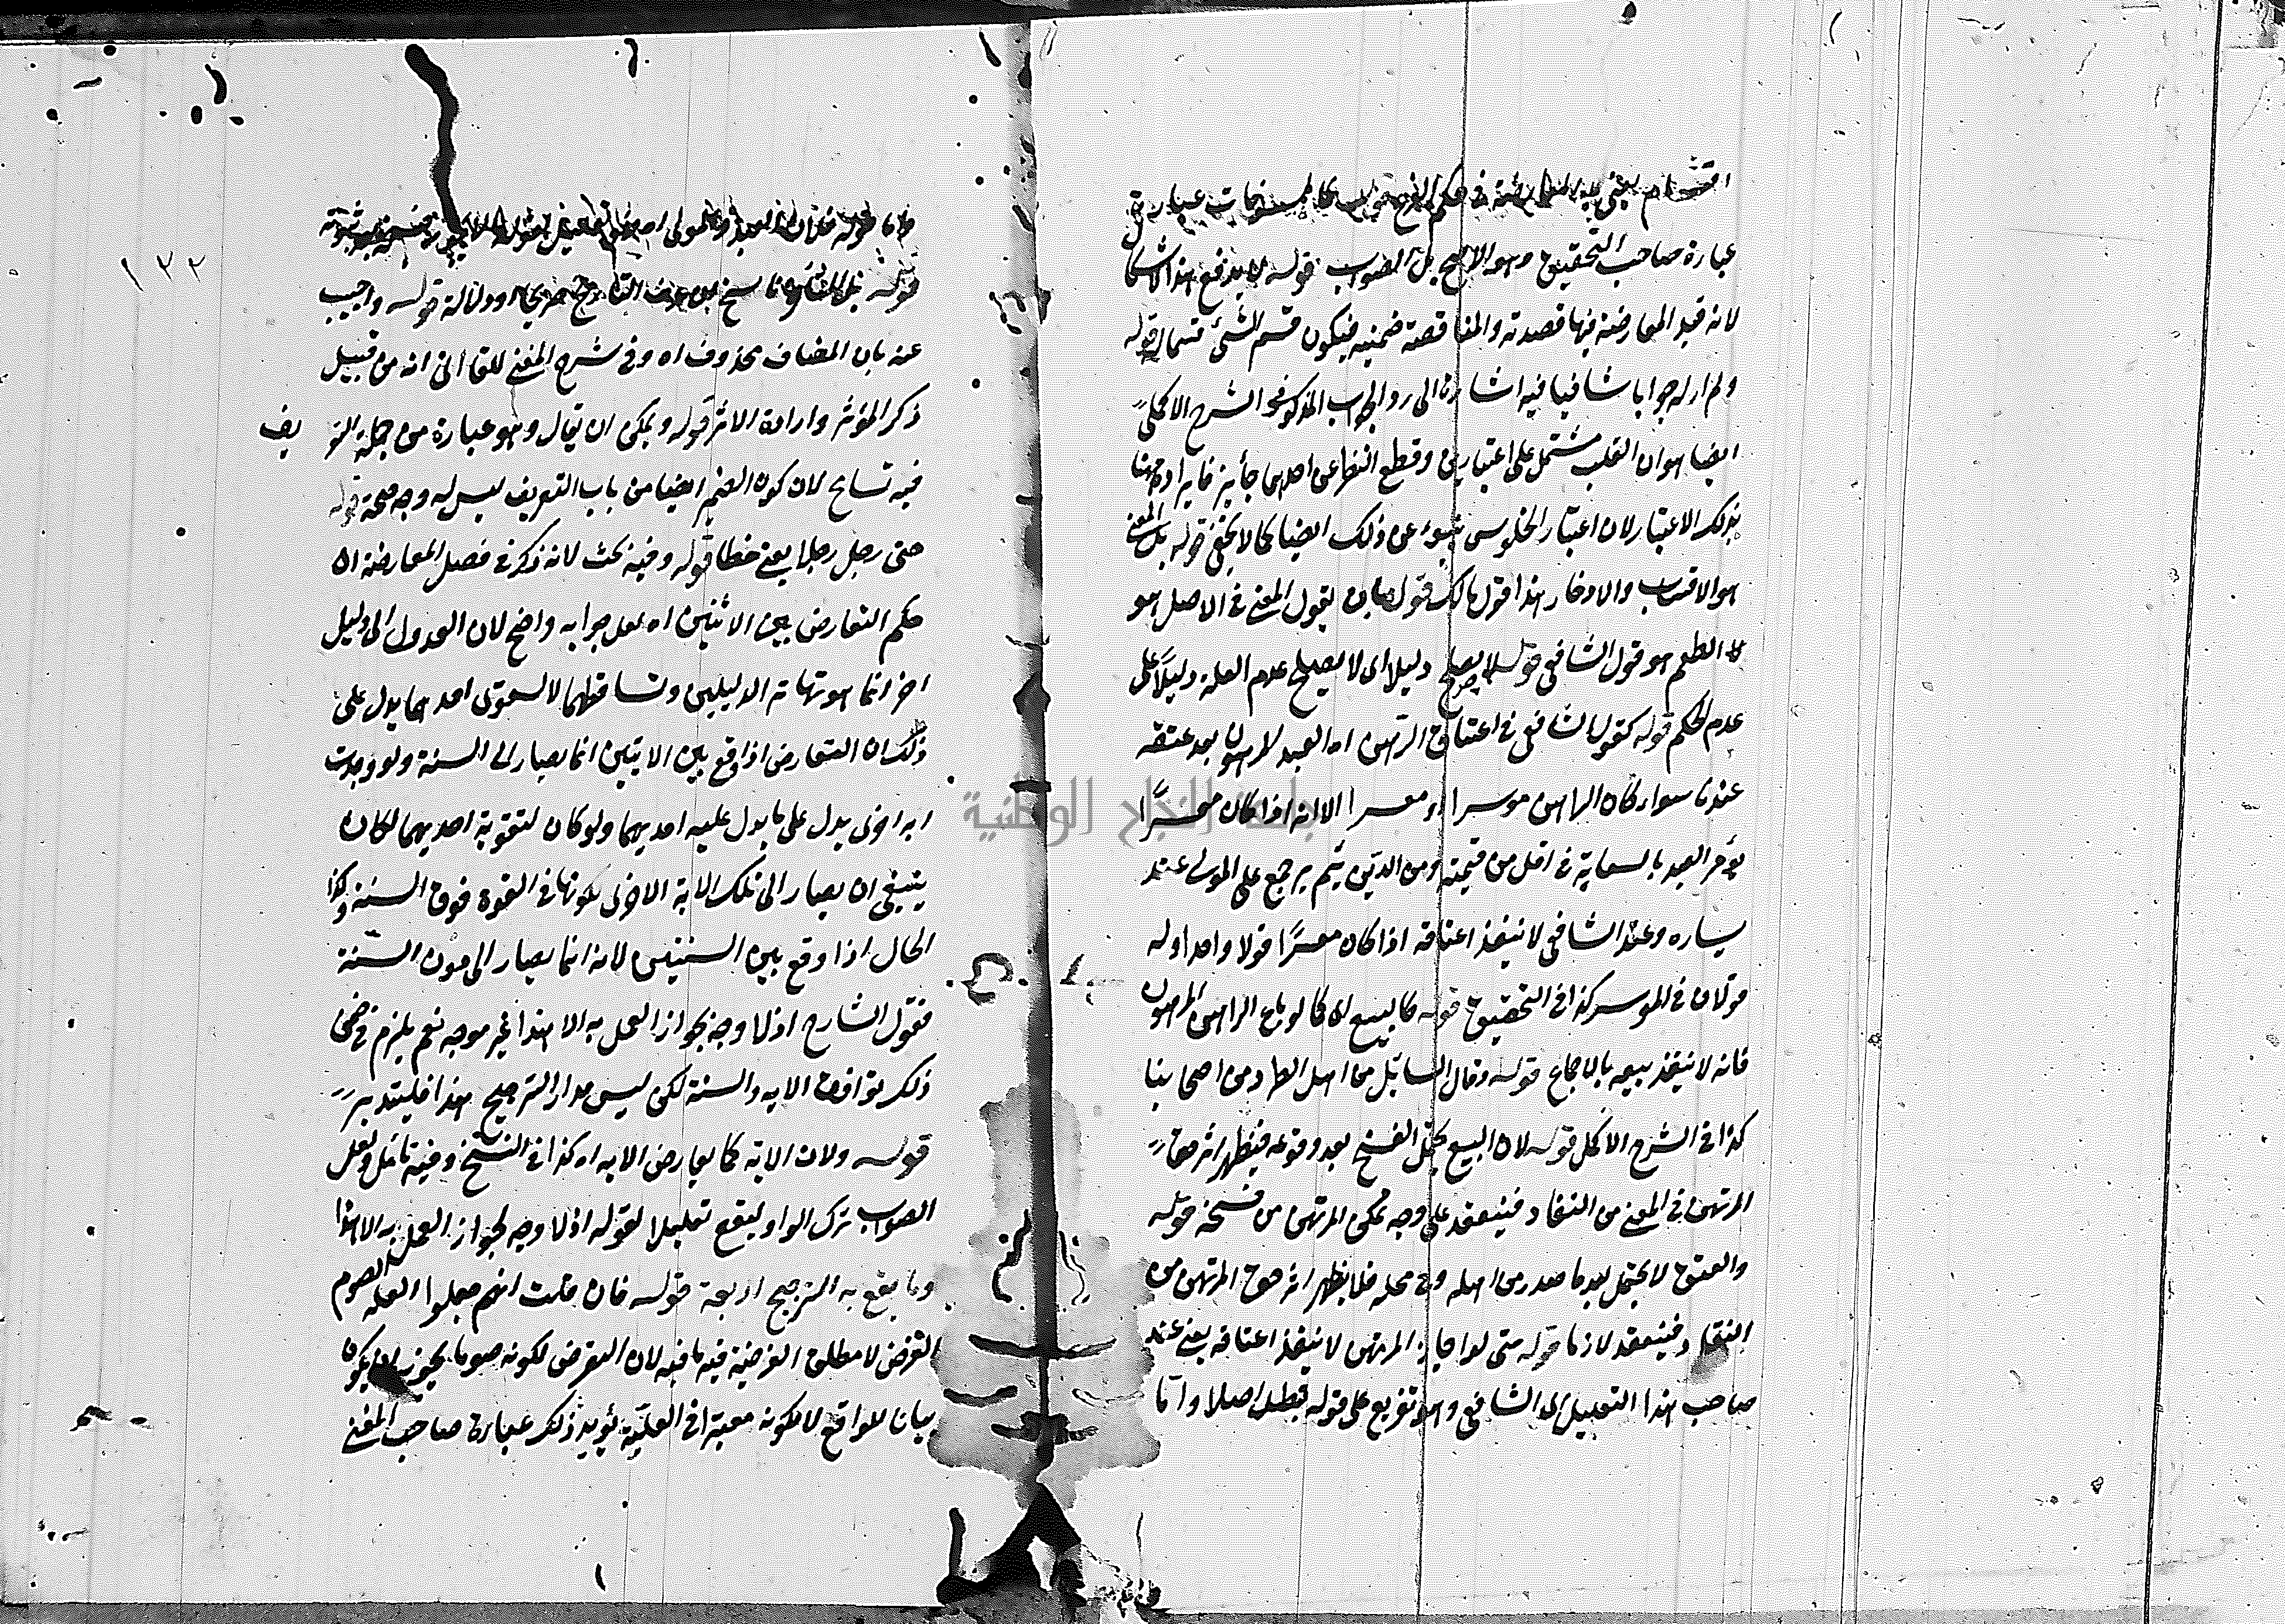 عبارة صاحب التحقيق وهو الاصح بل الصواب قوله يدفع هذا
لانه قيل المعارضة فيها قصدته والمناقضة ضمنية فيكون قسم الشئ قسما له قوله
ولم ار له جوابا شافيا فيه اشارة الى رد الجواب المذكور في الشرح الاكملى
ايضا هو ان القلب مشتمل على اعتبارين وقطع النظر عن احدهما جائز فايراده هنا
بذلك الاعتبار لان اعتبار الخلوص ينبوء عن ذلك ايضا كما لا يخفى قوله بل المعنى
هو الاقتيات والادخار هذا قول مالك قوله بان يقول المعنى في الاصل هو
الطعم هو قول الشافعي قوله لا يصلح دليلا اى لا يصلح عدم العلة دليلا على
عدم الحكم قوله كقول الشافعي في اعتاق الراهن اه العبد المرهون بعد عتقه
عندنا سواء كان الراهن موسرا او معسرا الا انه اذا كان معسرًا
يؤمر العبد بالسعاية في اقل من قيمته ومن الدين ثم يرجع على المولى عند
يساره وعند الشافعي لا ينفذ اعتاقه اذا كان معسرًا قولا واحدا وله
قولان في الموسر كذا في التحقيق قوله كالبيع اى كما لو باع الراهن المرهون
فانه لا ينفذ بيعه بالاجماع قوله وقال السائل من اهل الطرد من اصحابنا
كذا في الشرح الاكمل قوله لان البيع يحتمل الفسخ بعد وقوعه فيظهر اثر حق
المرتهن في المنع من النفاد فينعقد على وجه يمكن المرتهن من فسخه قوله
والعتق لا يحتمل بعد ما صدر من اهله في محله فلا يظهر اثر حق المرتهن من
النفاد فينعقد لازما قوله حتى لو اجاز المرتهن لا ينفذ اعتاقه يعنى عند
صاحب هذا التعليل اى الشافعي وهو تفريع على قوله يبطل اصلا واما
١٣٢
عنه بان المضاف محذوف اه وفي شرح المغنى للقاانى انه من قبيل
ذكر المؤثر وارادة الاثر قوله ويمكن ان يقال وهو عبارة من جملة التعر يف
فيه تسامح لان كون الضم ايضا من باب التعريف ليس له وجه صحة قوله
حتى رجل رجلا يعنى خطا قوله وفيه بحث لانه ذكر في فصل المعارضة ان
حكم التعارض بين الاثنين اه لعل جوابه واضح لان العدول الى دليل
اخر انما هو تهاتر الدليلين وتساقطهما لا لتقوى احدهما يدل على
ذلك ان التعارض اذا وقع بين الايتين انما يصار الى السنة ولو وجدت
اية اخرى يدل على ما يدل عليه احديهما ولو كان لتقوية احديهما لكان
ينبغى ان يصار الى تلك الاية الاخرى لكونها في القوة فوق السنة وكذا
الحال اذا وقع بين السنتين لانه انما يصار الى دون السنة
فقول الشارح اذ لا وجه لجواز العمل به الا هذا غير موجه نعم يلزم في ضمن
ذلك توافق الاية والسنة لكن ليس مدار الترجيح هذا فليتدبر
قوله ولان الاية كما يعارض الاية اه كذا في النسخ وفيه تأمل ولعل
الصواب ترك الواو ليقع تعليلا لقوله اذ لا وجه لجواز العمل به الا هذا
وما يقع به الترجيح اربعة قوله فان قلت انهم جعلوا العلة الصوم
الفرض لا مطلق الفرضية فيه ما فيه لان التعرض لكونه صوما يجوز ان يكون
بيانا للواقع لا لكونه معتبرا في العلية يؤيد ذلك عبارة صاحب المغنى
جامعة النجاح الوطنية